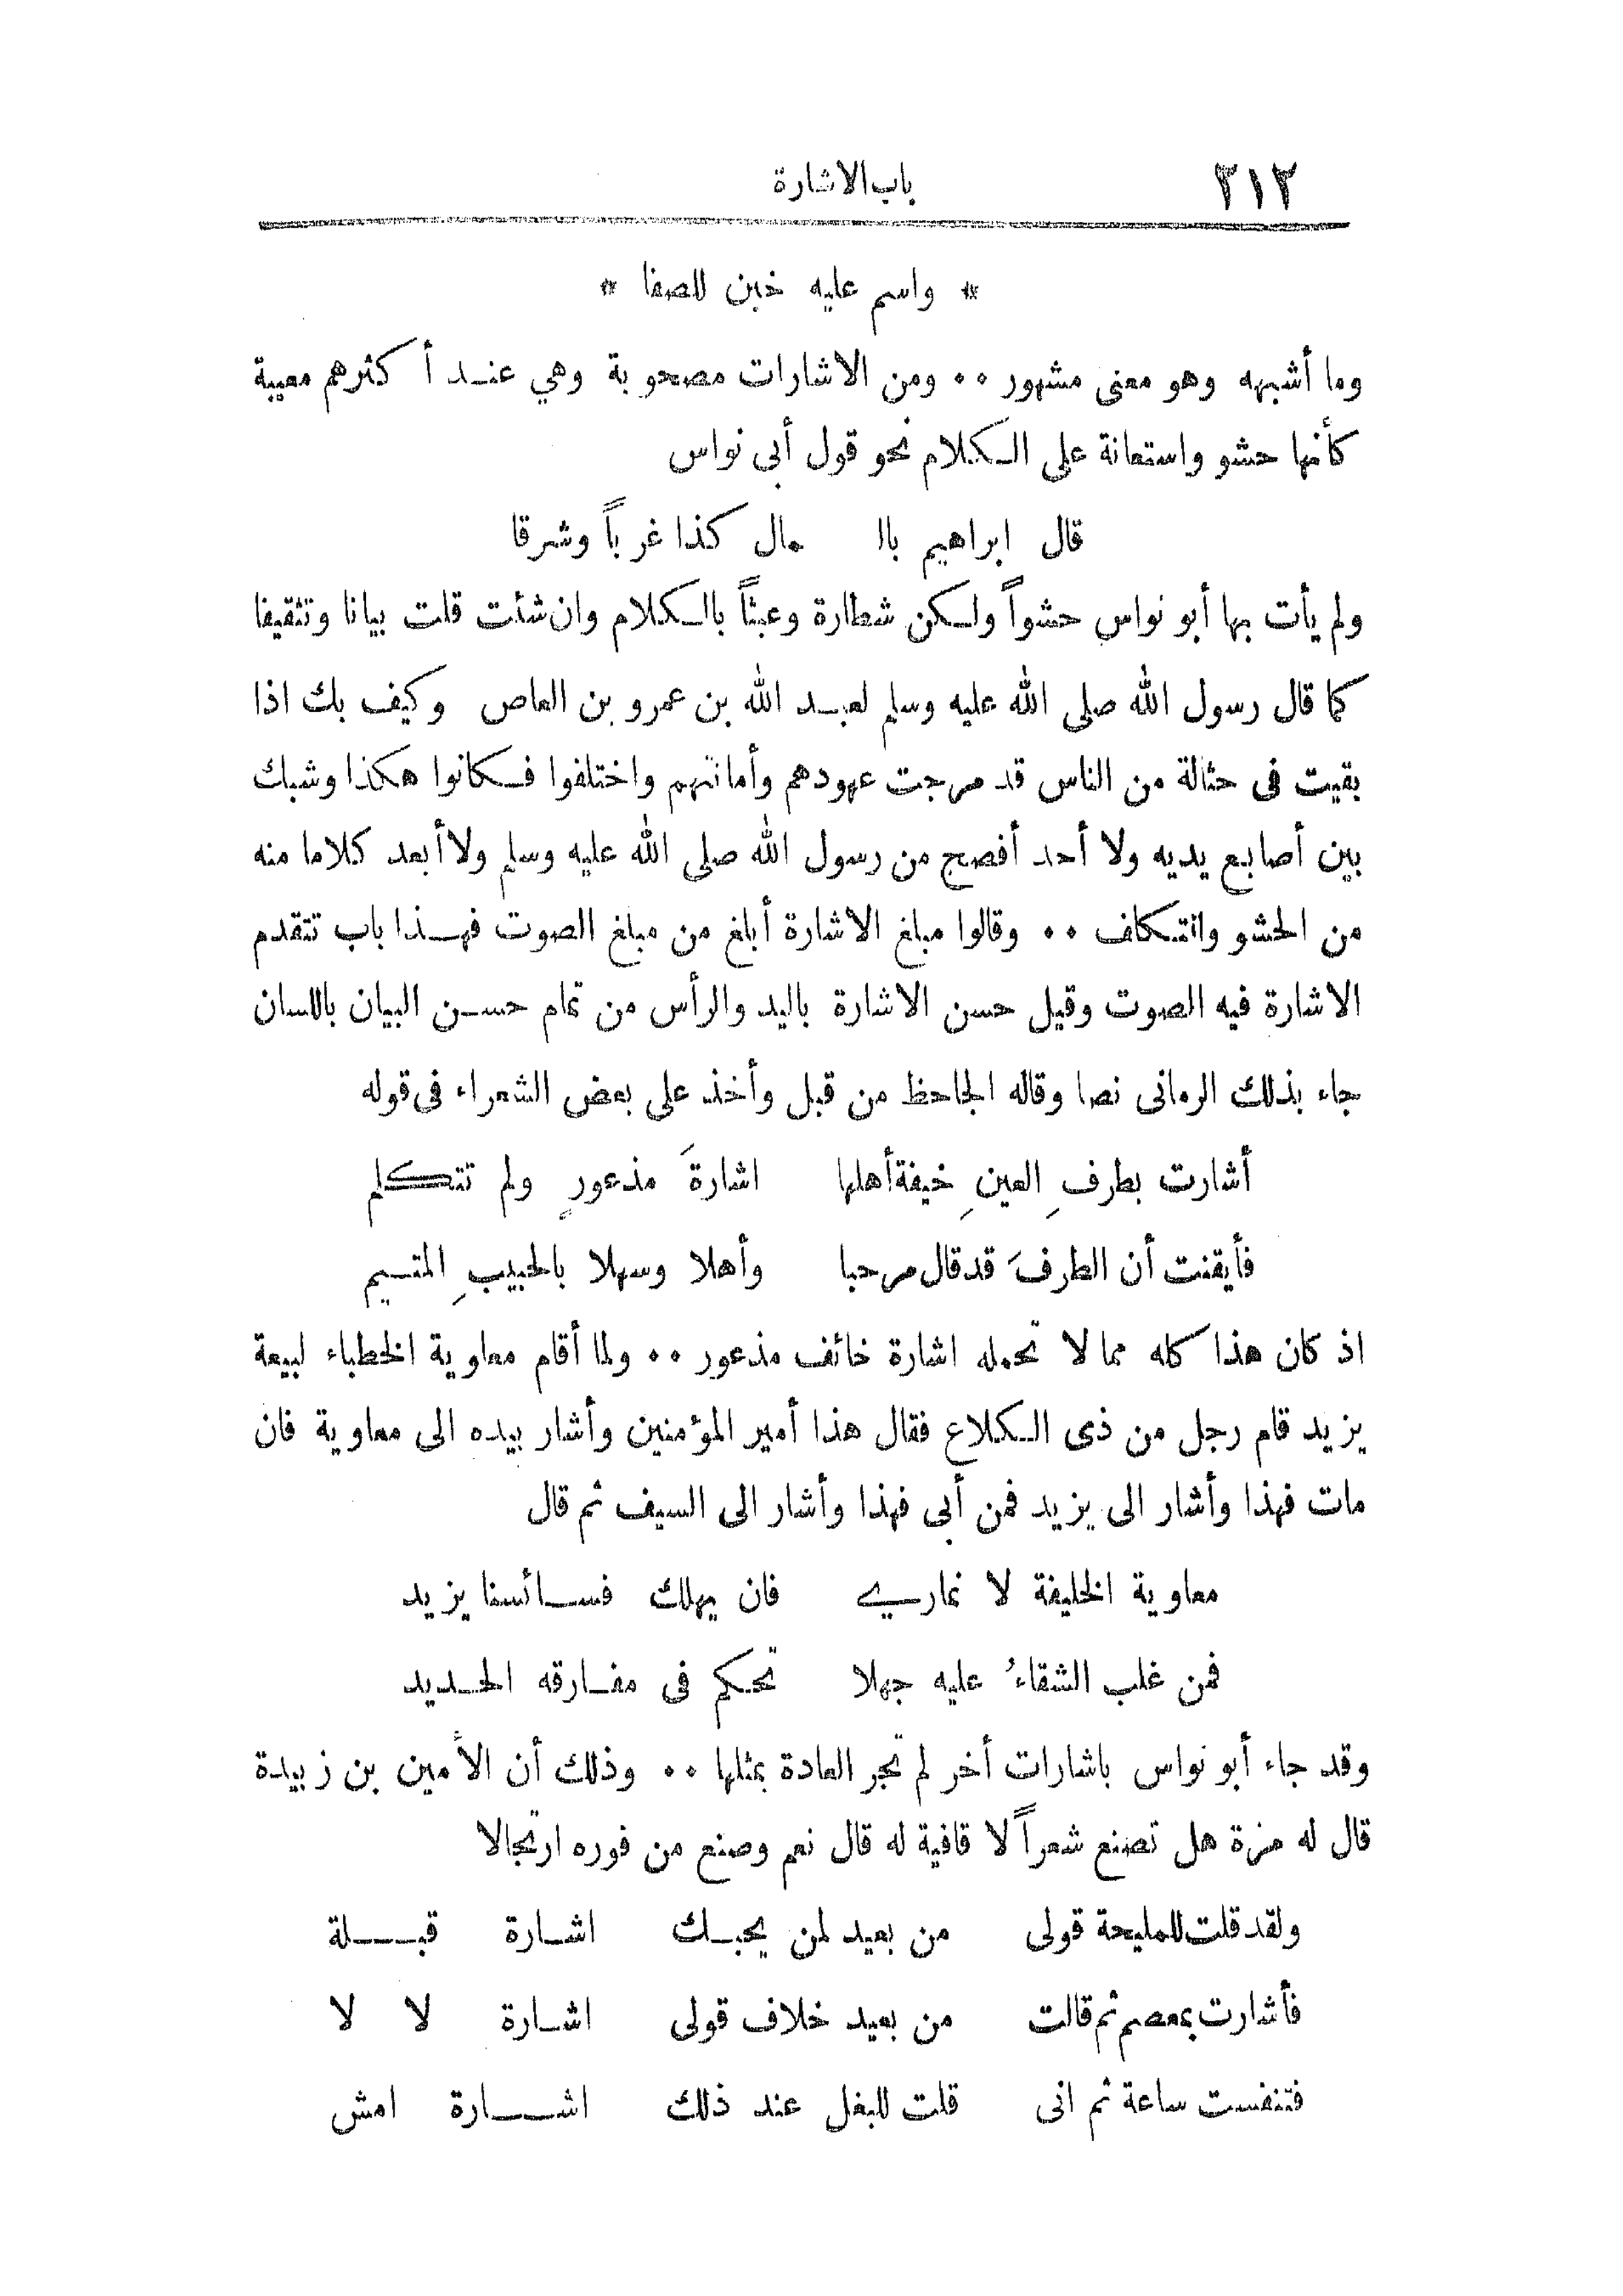 ٢١٢ باب الاشارة
* واسم عليه خبن للصفا *
وما أشبهه وهو معنى مشهور ٠٠ ومن الاشارات مصحوبة وهي عند أكثرهم معيبة
كأنها حشو واستعانة على الكلام نحو قول أبى نواس
قال ابراهيم بالـ مال كذا غرباً وشرقا
ولم يأت بها أبو نواس حشواً ولكن شطارة وعبثاً بالكلام وان شئت قلت بيانا وتثقيفا
كما قال رسول الله صلى الله عليه وسلم لعبد الله بن عمرو بن العاص وكيف بك اذا
بقيت فى حثالة من الناس قد مرجت عهودهم وأماناتهم واختلفوا فكانوا هكذا وشبك
بين أصابع يديه ولا أحد أفصح من رسول الله صلى الله عليه وسلم ولا أبعد كلاما منه
من الحشو والتكلف ٠٠ وقالوا مبلغ الاشارة أبلغ من مبلغ الصوت فهذا باب تتقدم
الاشارة فيه الصوت وقيل حسن الاشارة باليد والرأس من تمام حسن البيان باللسان
جاء بذلك الرمانى نصا وقاله الجاحظ من قبل وأخذ على بعض الشعراء فى قوله
أشارت بطرفِ العينِ خيفة أهلها اشارةَ مذعورٍ ولم تتكلم
فأيقنت أن الطرفَ قد قال مرحبا وأهلا وسهلا بالحبيبِ المتيم
اذ كان هذا كله مما لا تحمله اشارة خائف مذعور ٠٠ ولما أقام معاوية الخطباء لبيعة
يزيد قام رجل من ذى الكلاع فقال هذا أمير المؤمنين وأشار بيده الى معاوية فان
مات فهذا وأشار الى يزيد فمن أبى فهذا وأشار الى السيف ثم قال
معاوية الخليفة لا نمارى فان يهلك فسائسنا يزيد
فمن غلب الشقاءُ عليه جهلا تحكم فى مفارقه الحديد
وقد جاء أبو نواس باشارات أخر لم تجر العادة بمثلها ٠٠ وذلك أن الأمين بن زبيدة
قال له مرة هل تصنع شعراً لا قافية له قال نعم وصنع من فوره ارتجالا
ولقد قلت للمليحة قولى من بعيد لمن يحبك اشارة قبلة
فأشارت بمعصم ثم قالت من بعيد خلاف قولى اشارة لا لا
فتنفست ساعة ثم انى قلت للبغل عند ذلك اشارة امش